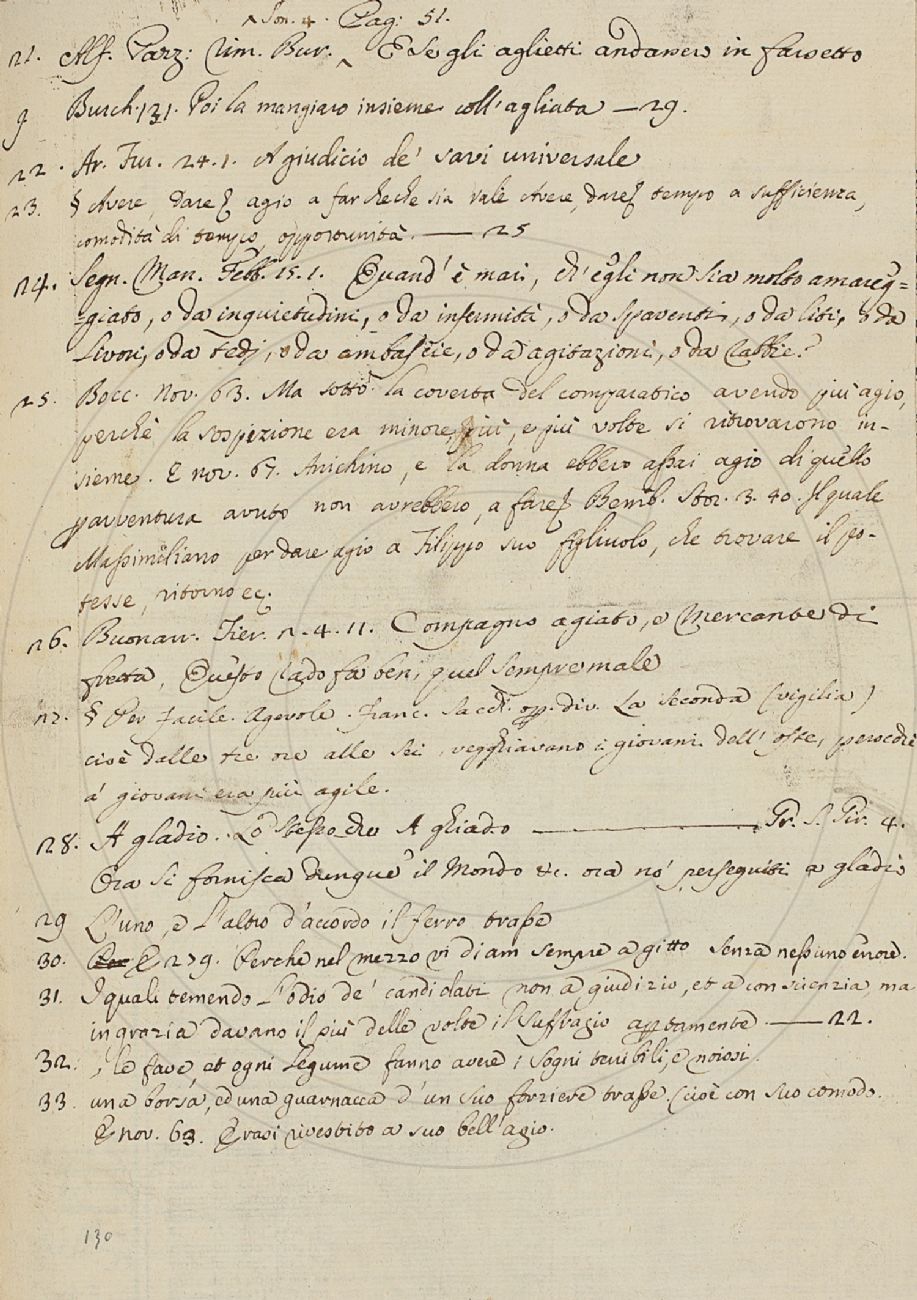 ^ Son. 4. Pag: 51.
21. Alf. Pazz: Rim. Bur. ^ E se gli aglietti andassero in farsetto
9 Burch. 131. Poi la mangiaro insieme coll' agliata — 29.
22. Ar. Fur. 24. 1. A giudicio de' savi universale
23. § Avere, dare agio a far che che sia vale Avere, dare tempo a sufficienza,
comodità di tempo, opportunità. — 25
24. Segn. Man. Febb. 15. 1. Quand' è mai, ch' egli non sia molto amareg=
=giato, o da inquietudini, o da infermità, o da spaventi, o da liti, o da
Livori, o da tedj, o da ambascie, o da agitazioni, o da rabbie?
25. Bocc. Nov. 63. Ma sotto la coverta del comparatico avendo più agio,
perchè la sospezione era minore, più, e più volte si ritrovarono in-
sieme. E nov. 67. Anichino, e la donna ebbero assai agio di quello
paravventura avuto non avrebbero, a fare Bemb. Stor. 3. 40. Il quale
Massimiliano per dare agio a Filippo suo figliuolo, che trovare il po-
tesse, ritornò ec.
26. Buonarr. Fier. 2. 4. 11. Compagno agiato, e Mercante di
fretta, Questo rado fa ben, quel sempre male
27. § Per facile. Agevole. Franc. Sacch. op. div. La seconda (vigilia)
cioè dalle tre ore alle sei, vegghiavano i giovani dell' oste, perocchè
a' giovani era più agile.
28. A gladio. Lo stesso che A ghiado — Pr. S. Pir. 4.
Ora si fornisca dunque il Mondo &c. ora nò perseguiti a gladio
29 L'uno, e L'altro d'accordo il ferro trasse
30. E 279. Perche nel mezzo vi diam sempre a gitto senza nessuno errore.
31. I quali temendo l'odio de' candidati non a giudizio, et a conscienzia ma
in grazia davano il più delle volte il suffragio apertamente — 22.
32. , le fave, et ogni legume fanno avere i sogni terribili, e noiosi.
33. una borsa, ed una guarnacca d' un suo forziere trasse. (cioè con suo comodo.
E nov. 63. Erasi rivestito a suo bell' agio.
130